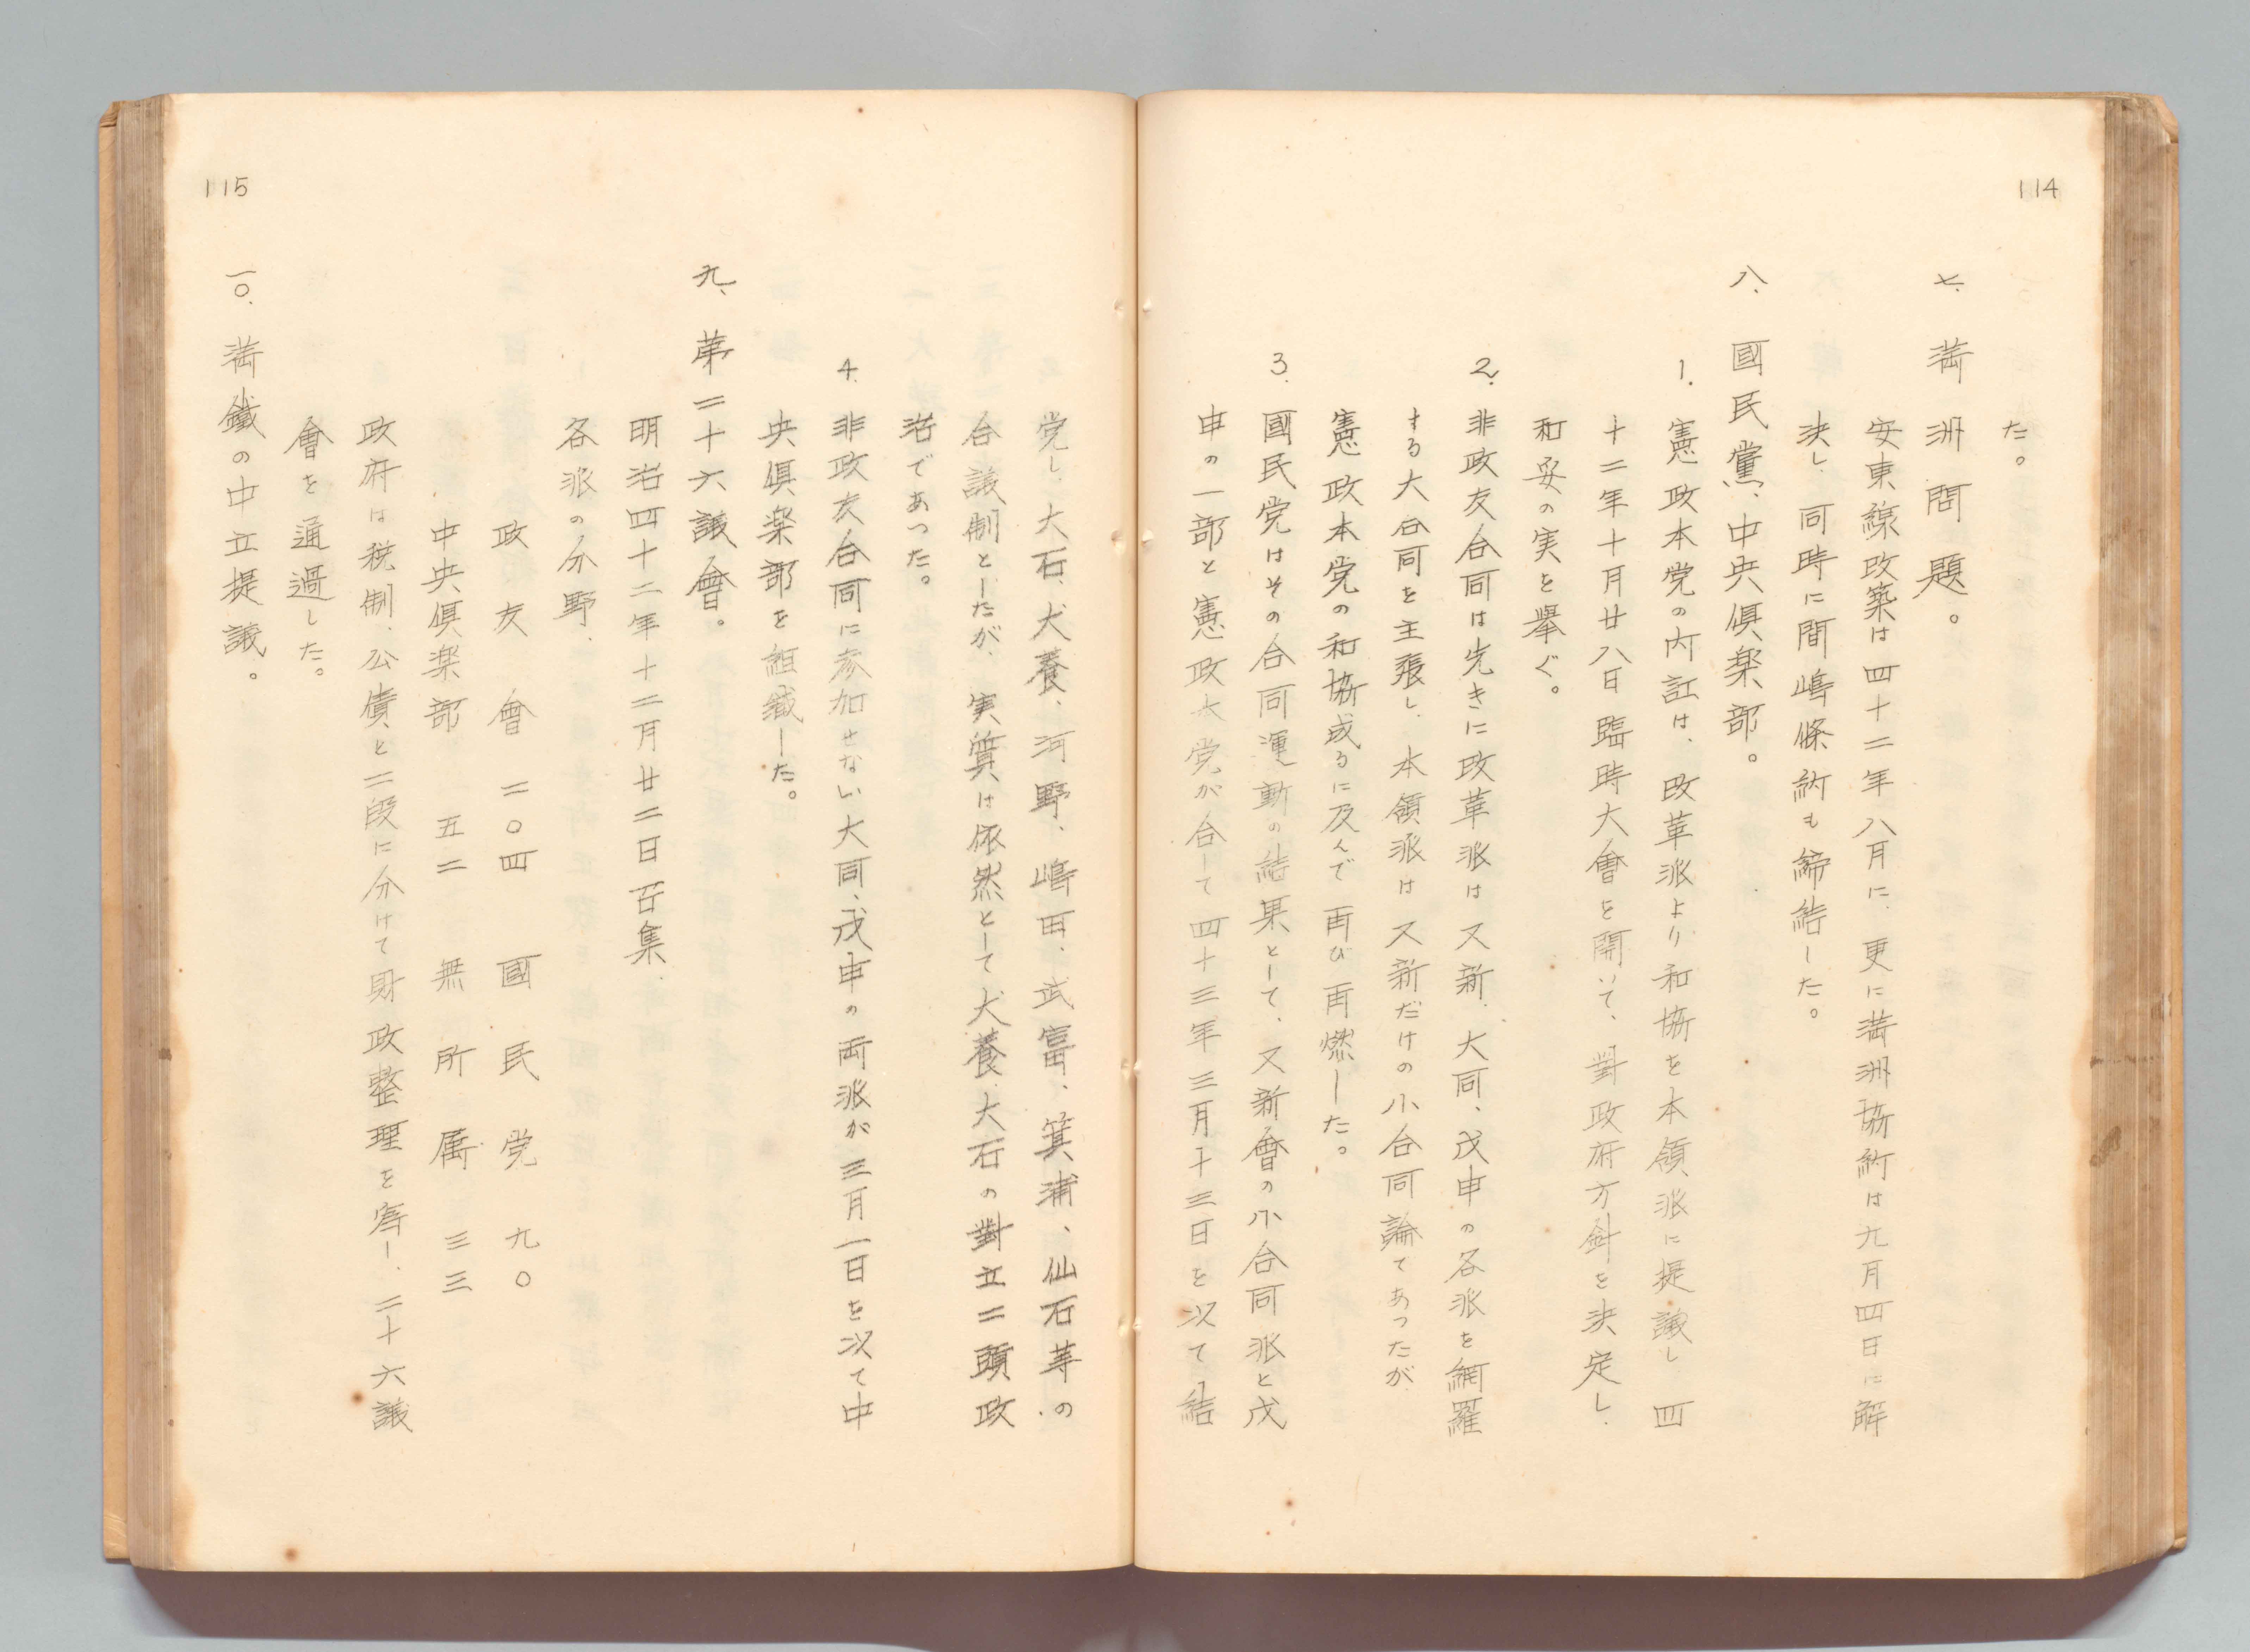 114
た。
七、満洲問題。
安東線改築は四十二年八月に、更に満洲協約は九月四日に解
決し、同時に間嶋條約も締結した。
八、國民黨、中央倶楽部。
1. 憲政本党の内訌は、改革派より和協を本領派に提議し四
十二年十月廿八日臨時大會を開いて、對政府方針を決定し、
和妥の実を擧ぐ。
2. 非政友合同は先きに改革派は又新、大同、戊申の各派を網羅
する大合同を主張し、本領派は又新だけの小合同論であったが
憲政本党の和協成るに及んで再び再燃した。
3. 國民党はその合同運動の結果として、又新會の小合同派と戊
申の一部と憲政本党が合して四十三年三月十三日を以て結
党し、大石、犬養、河野、嶋田、武富、箕浦、仙石等の
合議制としたが、実質は依然として犬養、大石の對立二頭政
治であつた。
4. 非政友合同に参加せない大同、戊申の両派が三月一日を以て中
央倶楽部を組織した。
九、第二十六議會。
明治四十二年十二月廿二日召集.
各派の分野、
政友會 二〇四 國民党 九〇
中央倶楽部 五二 無所属 三三
政府は税制、公債と二段に分けて財政整理を寄し、二十六議
會を通過した。
一〇. 満鐵の中立提議。
115